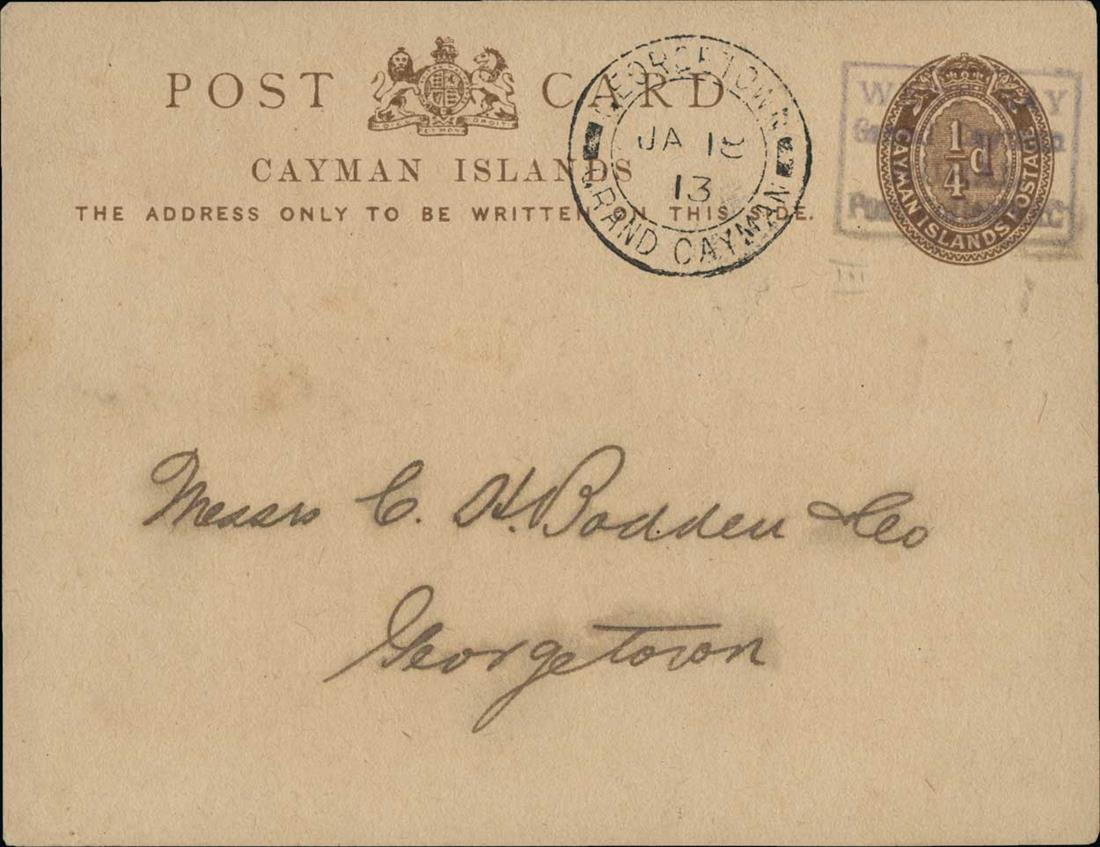 POST CARD
CAYMAN ISLANDS
THE ADDRESS ONLY TO BE WRITTEN ON THIS SIDE.
GEORGETOWN
JA 18
13
GRAND CAYMAN
1/4d
CAYMAN ISLANDS POSTAGE
Messrs C. H. Bodden & Co
Georgetown